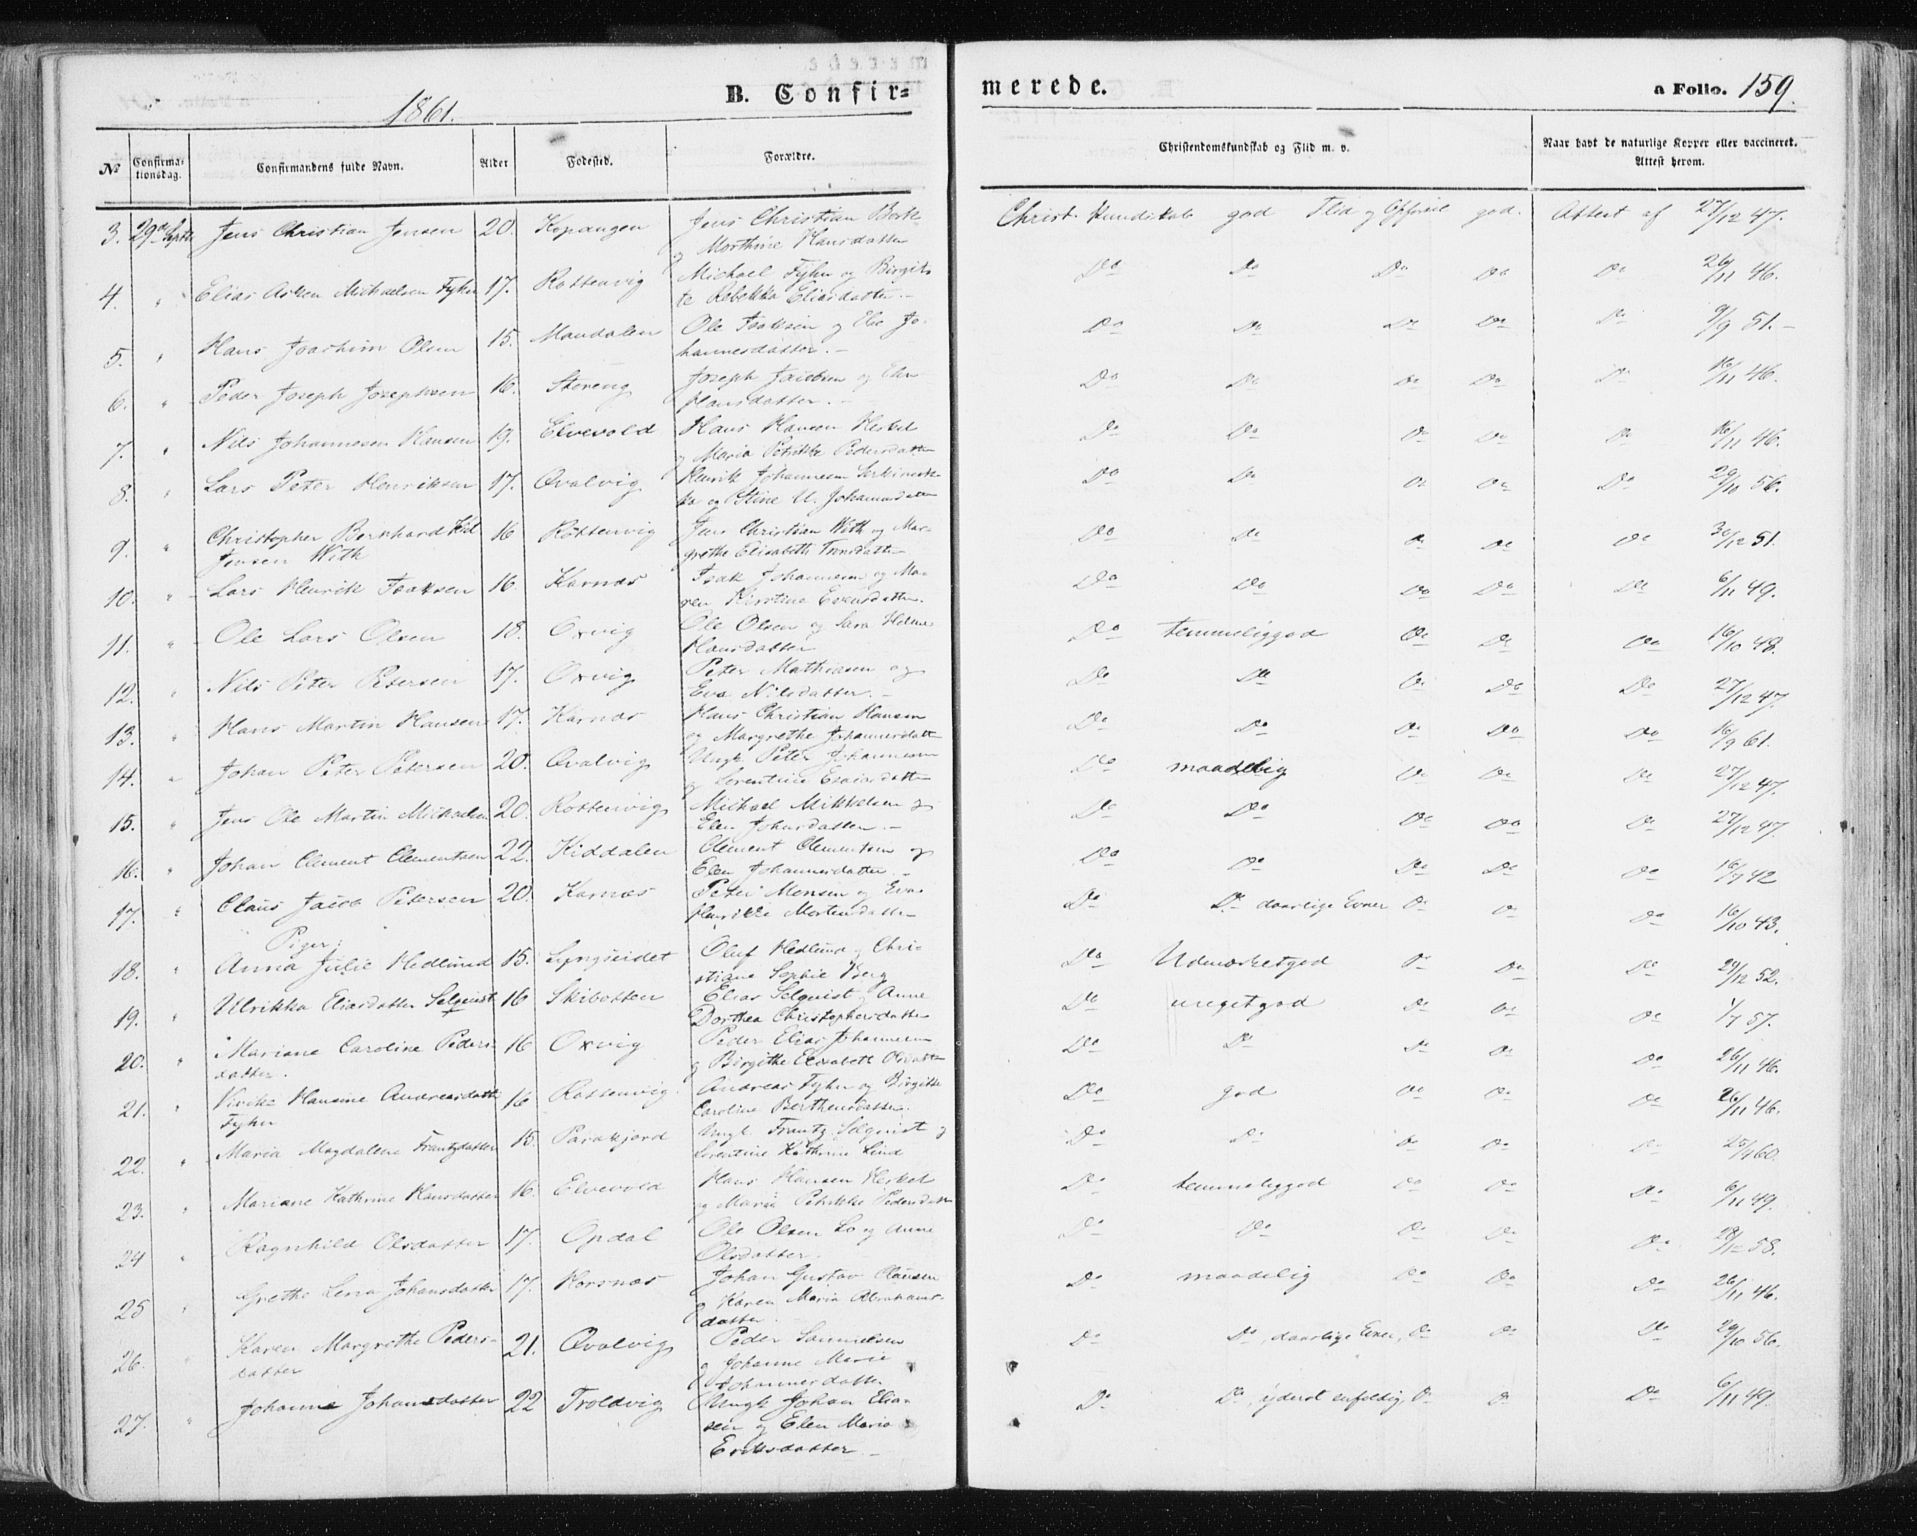 1861.
B. Confir=
merede.
a Folio. 159.
№ Confirmationsdag. Confirmandens fulde Navn. Alder Fødested. Forældre. Christendomskundskab og Flid m. v. Naar havt de naturlige Kopper eller vaccineret. Attest herom.
3. 29de Septb Jens Christian Jensen 20. Kopangen Jens Christian og Marthine Hansdatter Christ. kundskab god Flid og Opførsel god. Attest af 27/12 47.
4. " Elias Michaelsen Fyhn 17. Rottenvig Michael Fyhn og Birgitte Rebekka Eliasdatter.- Do Do Do Do Do 26/11 46.
5. " Hans Joachim Olsen 15. Mandalen Ole Isaksen og Else Johannesdatter.- Do Do Do Do Do 9/9 51.-
6. " Peder Joseph Josephsen 16. Stereng Joseph Jacobsen og Hansdatter.- Do Do Do Do Do 16/11 46.
7. " Nils Johannesen Hansen 19. Elvevold Hans Hansen Heskel og Maria Petrikke Pedersdatter Do Do Do Do Do 16/11 46.
8. " Lars Peter Henriksen 17. Qvalvig Henrik Johannesen og Stine U. Johannesdatter Do Do Do Do Do 29/10 56.
9. " Christopher Bernhard Jensen With 16 Rottenvig Jens Christian With og Margrethe Elisabeth Tønsdatter Do Do Do Do Do 30/12 51.
10. " Lars Henrik Isaksen 16. Karnæs Isak Johannesen og Maren Kirstine Evensdatter. Do Do Do Do Do 6/11 49.
11. " Ole Lars Olsen 18. Oxvig Ole Olsen og Sara Helene Hansdatter Do temmeliggod Do Do Do 16/10 48.
12. " Nils Peter Petersen 17. Oxvig Peter Mathisen og Eva Nilsdatter.- Do Do Do Do Do 27/12 47.
13. " Hans Martin Hansen 17. Karnæs Hans Christian Hansen og Margrethe Johannesdatter Do Do Do Do Do 16/9 61.
14. " Johan Peter Petersen 20. Qvalvig Ungk. Peter Johannesen og Lorentine Esaiasdatter Do maadelig Do Do Do 27/12 47.
15. " Jens Ole Martin Michaelsen 20. Rottenvig Michael Mikkelsen og Elen Johansdatter.- Do Do Do Do Do 27/12 47.
16. " Johan Clement Clementsen 22. Kiddalen Clement Clementsen og Elen Johannesdatter.- Do Do Do Do Do 16/7 42
17. " Claus Jacob Petersen 20. Karnæs Peter Monsen og Eva Henrikke Mortensdatter Do Do daarlige Evner Do Do Do 16/10 43.
Piger:
18. " Anna Julie Hedlund 15. Lyngseidet Oluf Hedlund og Christiane Sophie Berg Do Udmærketgod Do Do Do 29/12 52.
19. " Ulrikka Eliasdatter Selqvist 16 Skibotten Elias Selqvist og Anne Dorthea Christophersdatter Do megetgod Do Do Do 1/7 57.
20. " Mariane Caroline Pedersdatter. 16 Oxvig Peder Elias Johannesen og Birgithe Elisabeth Olsdatter Do Do Do Do Do 26/11 46.
21. " Hansine Andreasdatter Fyhn 16 Rottenvig. Andreas Fyhn og Birgitte Caroline Berthensdatter. Do god Do Do Do 26/11 46.
22. " Maria Magdalena Frantzdatter 15. Parakjord Ungk. Frantz Selqvist og Lorentine Kathrine Lind Do Do Do Do Do 25/9 60.
23. " Mariane Kathrine Hansdatter 16. Elvevold Hans Hansen Heskel og Maria Petrikke Pedersdatter Do temmeliggod Do Do Do 6/11 49.
24 " Ragnhild Olsdatter 17. Opdal Ole Olsen Lo og Anne Olsdatter.- Do Do Do Do Do 28/12 58.
25 " Grethe Lena Johansdatter 17. Horsnæs Johan Gustav Clausen og Karen Maria Abrahamsdatter. Do maadelig Do Do Do 26/11 46.
26. " Karen Margrethe Pedersdatter 21. Qvalvig Peder Samuelsen og Johanne Marie Johannesdatter Do Do, daarlige Evner, Do Do Do 29/10 56.
27. " Johanne Johansdatter 22 Troldvig Ungk Johan Eliassen og Elen Maria Eriksdatter.- Do Do, yderst enfoldig Do Do Do 6/11 49.